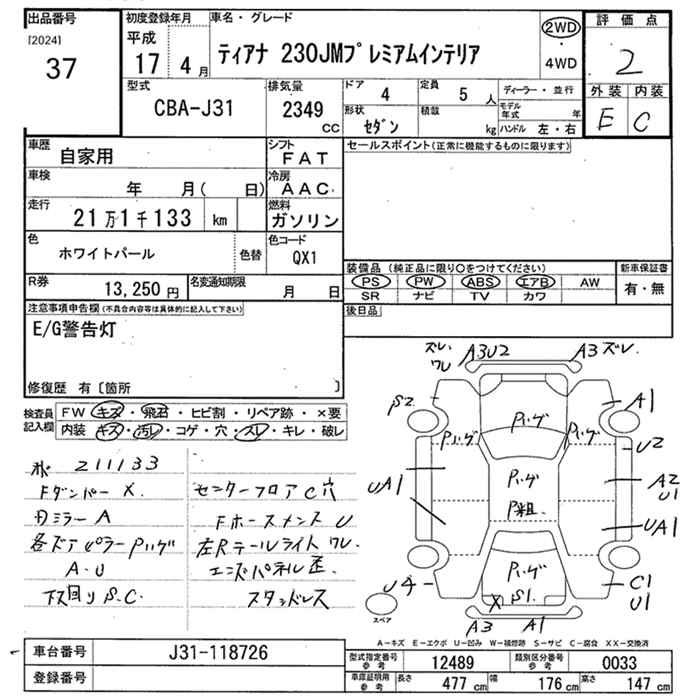 出品番号
[2024]
37
初度登録年月
平成
17 4 月
車名・グレード
ティアナ 230JMプレミアムインテリア
2WD
・
4WD
評価点
2
外装 内装
E C
型式
CBA-J31
排気量
2349
CC
ドア
4
定員
5 人
形状
セダン
積載
kg
ディーラー・並行
モデル年式 年
ハンドル 左・右
車歴
自家用
シフト
FAT
セールスポイント(正常に機能するものに限ります)
車検
年 月( 日)
冷房
AAC
走行
21万1千133 km
燃料
ガソリン
色
ホワイトパール
色替
色コード
QX1
装備品 (純正品に限り○をつけてください)
新車保証書
PS PW ABS エアB AW
SR ナビ TV カワ
有・無
R券
13,250 円
名変通知期限
月 日
後日品
注意事項申告欄(不具合内容等は具体的に記入して下さい)
E/G警告灯
修復歴 有〔箇所 〕
検査員記入欄
FW キズ・飛石・ヒビ割・リペア跡・×要
内装 キズ・汚レ・コゲ・穴・スレ・キレ・破レ
211133
Fダンパー X.
センターフロア C穴
ミラー A
Fホースメンス U
各ドアピラー Pハゲ
左Rテールライト ワレ.
A.U
エンドパネル 歪.
下回り S.C.
スタッドレス
ズレ.
ワレ
A3U2
A3 ズレ.
S2.
A1
Pハゲ
Pハゲ
Pハゲ
U2
Pハゲ
UA1
A2
U1
P粗.
UA1
Pハゲ
U4
X S1.
C1
U1
スペア
A3
A1
A-キズ E-エクボ U-凹み W-補修跡 S-サビ C-腐食 XX-交換済
車台番号
J31-118726
登録番号
型式指定番号
参考
12489
類別区分番号
参考
0033
車庫証明用
参考
長さ
477 cm
幅
176 cm
高さ
147 cm